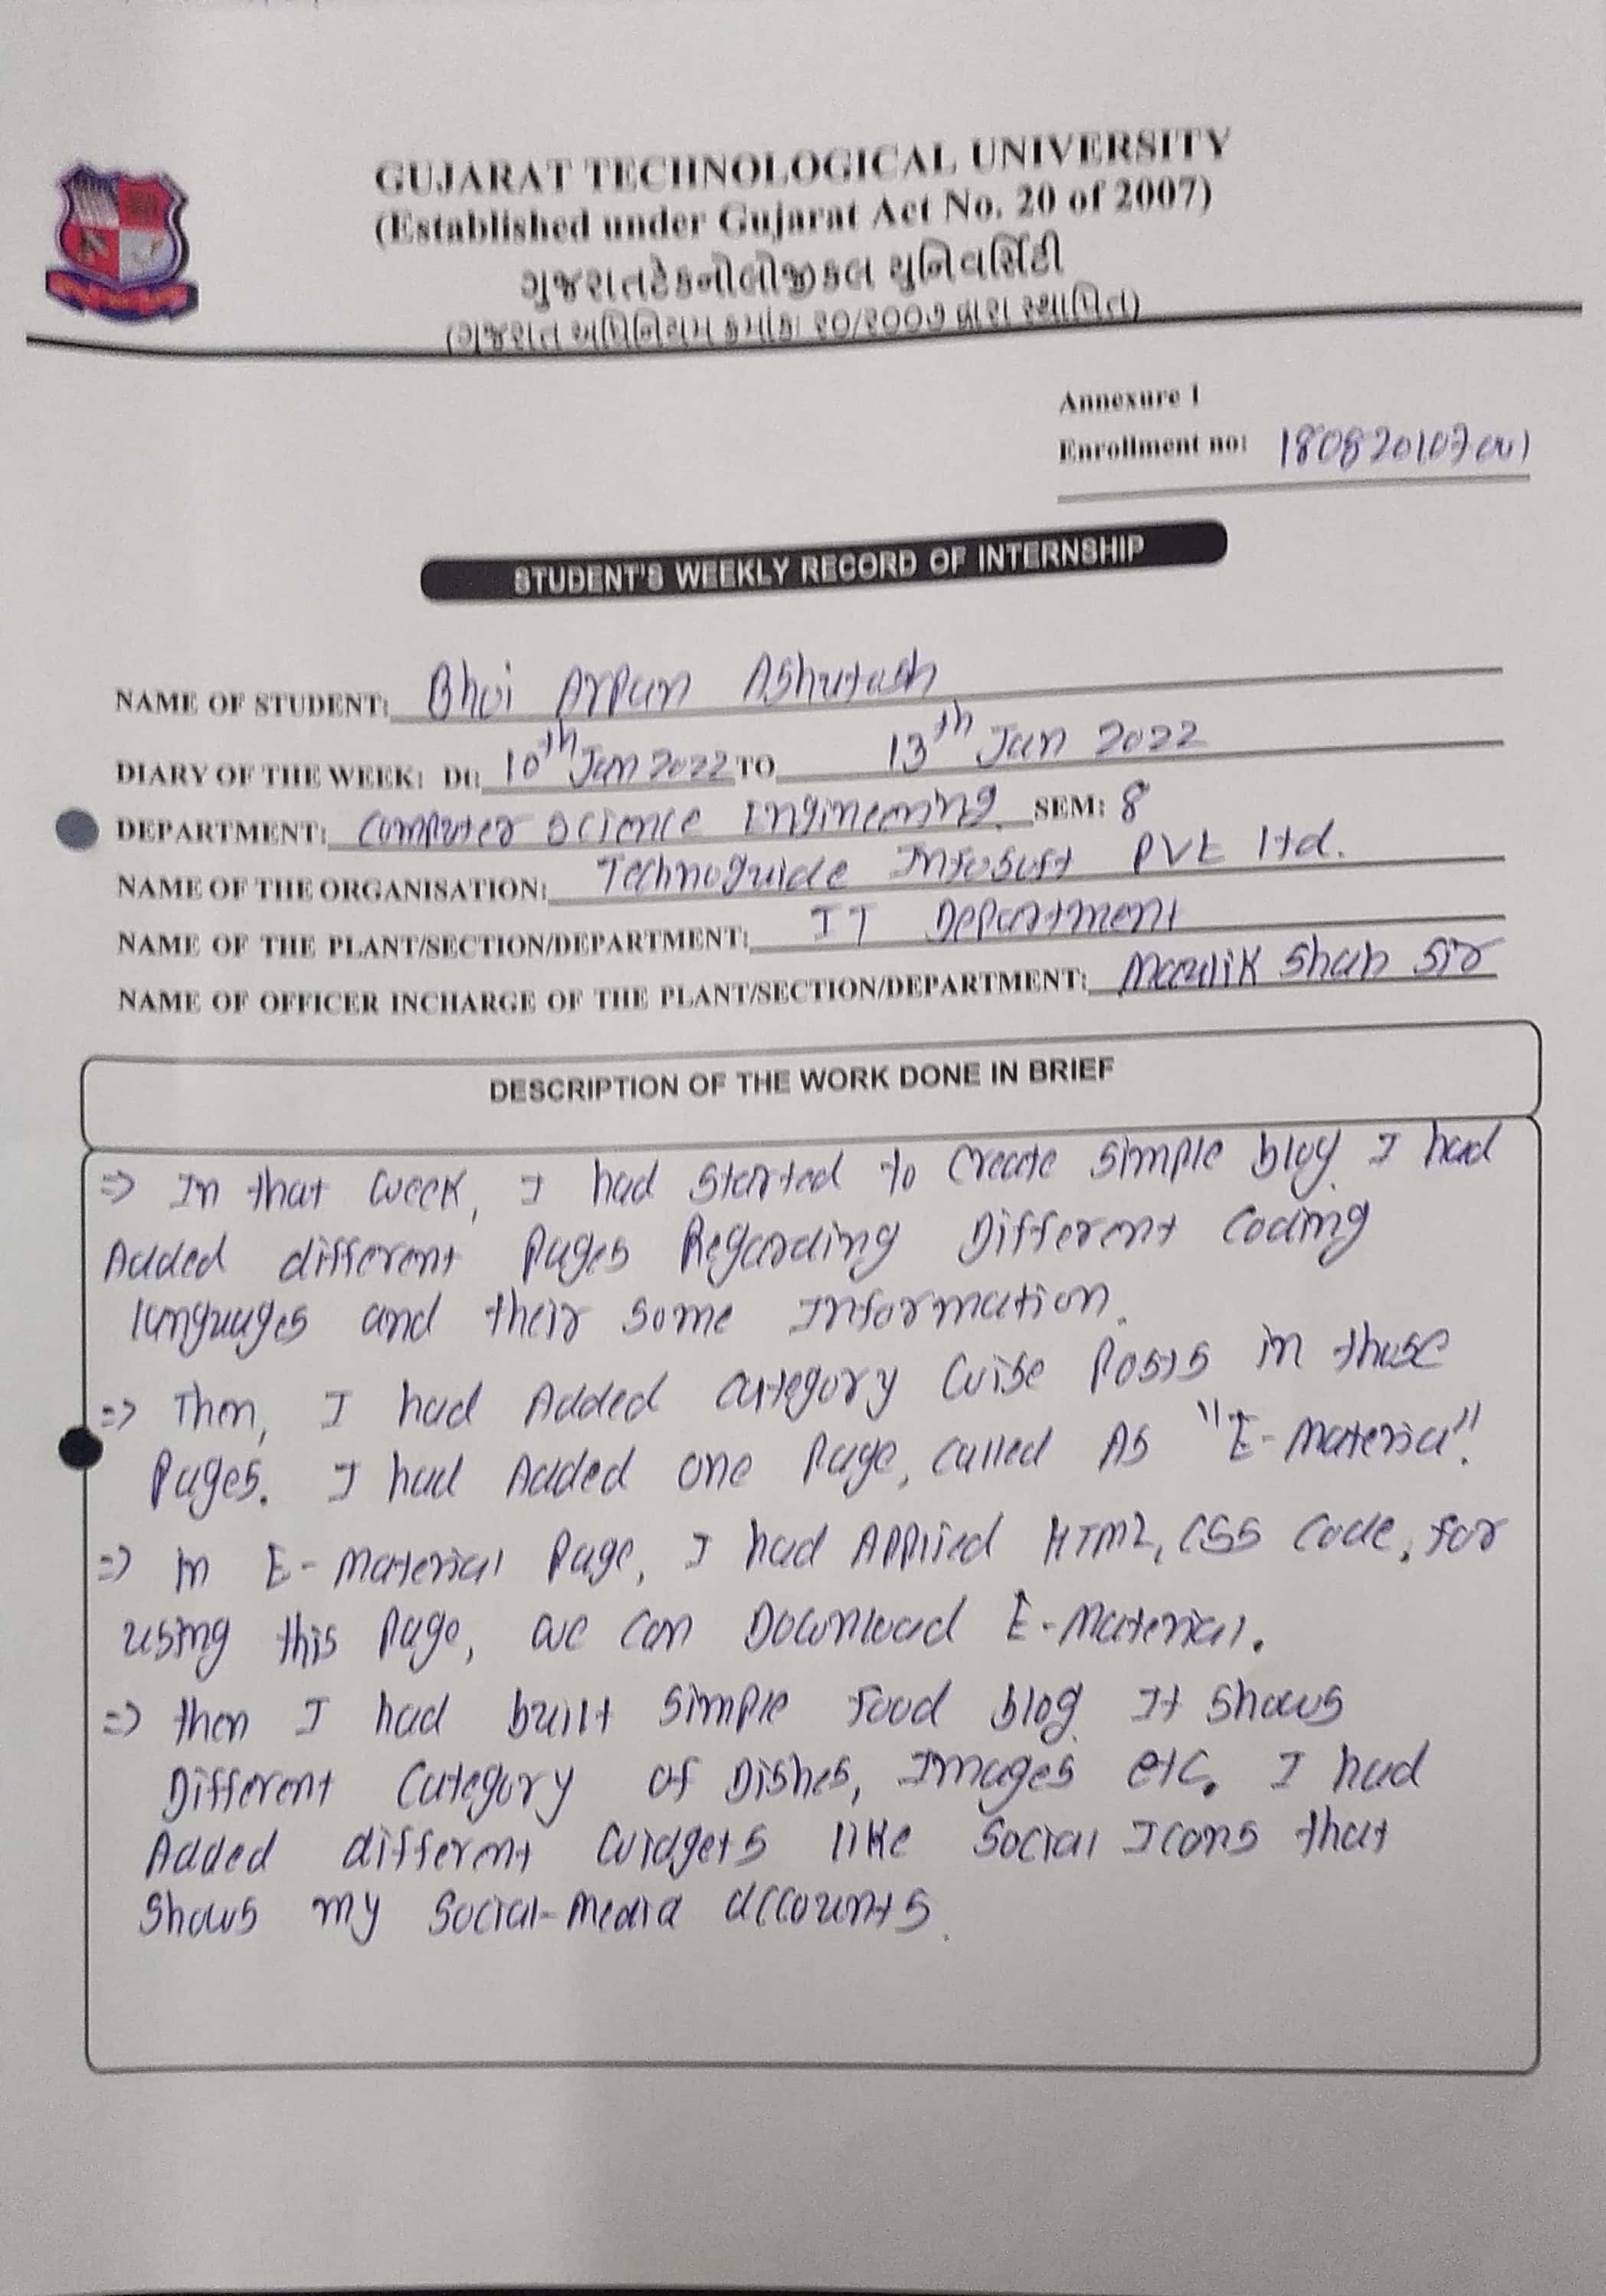 GUJARAT TECHNOLOGICAL UNIVERSITY
(Established under Gujarat Act No. 20 of 2007)
ગુજરાતટેકનોલોજીકલ યુનિવર્સિટી
(ગુજરાત અધિનિયમ ક્રમાંકઃ ૨૦/૨૦૦૭ દ્વારા સ્થાપિત)
Annexure 1
Enrollment no: 180820107001
STUDENT'S WEEKLY RECORD OF INTERNSHIP
NAME OF STUDENT: Bhoi Arpan Ashutosh
DIARY OF THE WEEK: Dt: 10th Jan 2022 TO 13th Jan 2022
DEPARTMENT: Computer Science Engineering SEM: 8
NAME OF THE ORGANISATION: Technoguide Infosoft PVt ltd.
NAME OF THE PLANT/SECTION/DEPARTMENT: IT Department
NAME OF OFFICER INCHARGE OF THE PLANT/SECTION/DEPARTMENT: Maulik Shah Sir
DESCRIPTION OF THE WORK DONE IN BRIEF
⇒ In that week, I had started to Create simple blog. I had
Added different Pages Regarding Different Coding
languages and their some Information.
⇒ Then, I had Added category wise Posts in those
Pages. I had Added one Page, called As "E-Material".
⇒ in E-Material Page, I had Applied HTML, CSS Code, for
using this Page, we can Download E-Material.
⇒ then I had built simple food blog. It shows
Different Category of Dishes, Images etc. I had
Added different widgets like Social Icons that
shows my Social-Media accounts.